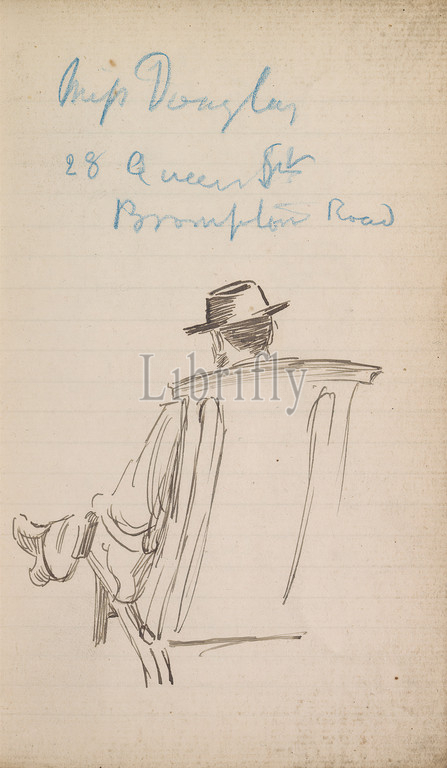 Miss Douglas
28 Queen St
Brompton Road
Librifly